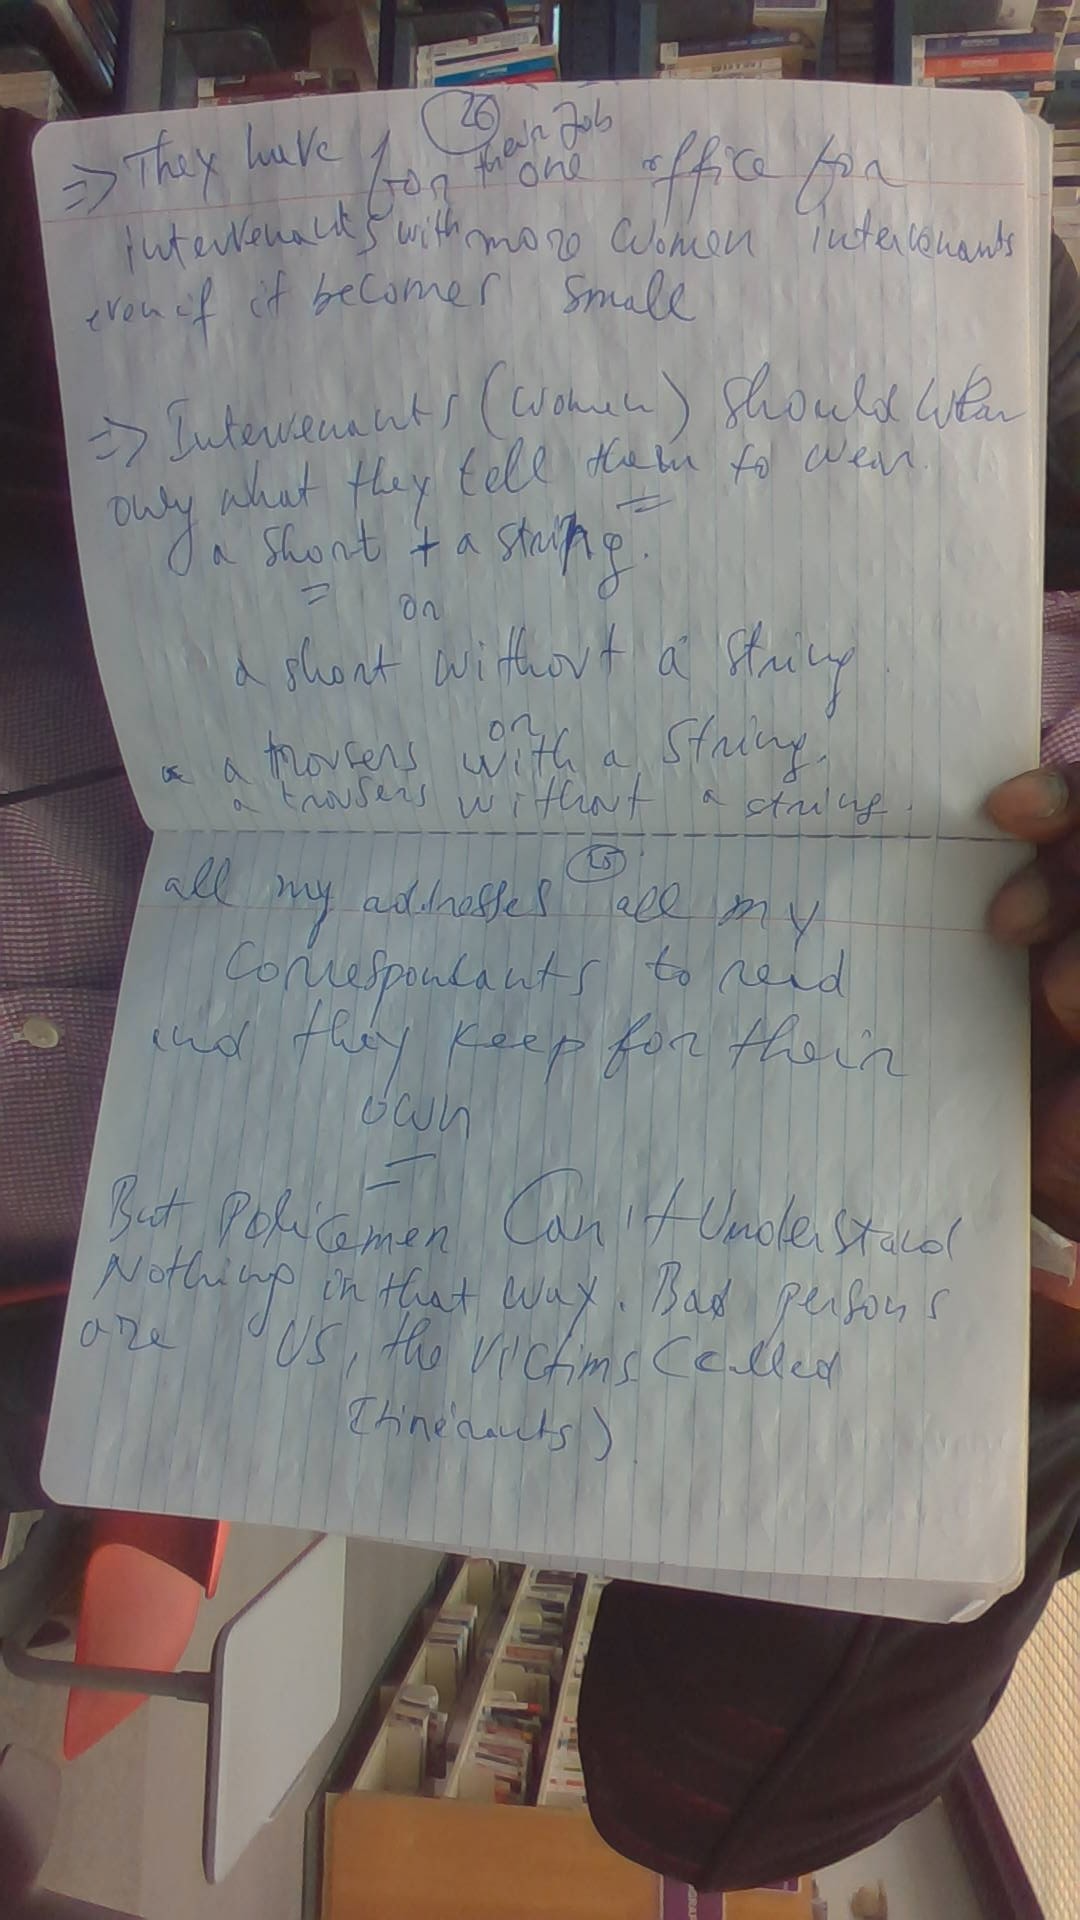 26
⇒ They have for their Job
one office for
intervenants with more women intervenants
even if it becomes small
⇒ Intervenants (women) should wear
only what they tell them to wear.
a short + a string.
or
a short without a string.
or
a trousers with a string.
a trousers without a string.
25
all my addresses all my
Correspondants to read
and they keep for their
own
But policemen Can't Understand
Nothing in that way. Bad persons
are US, the victims (called
Itinérants)